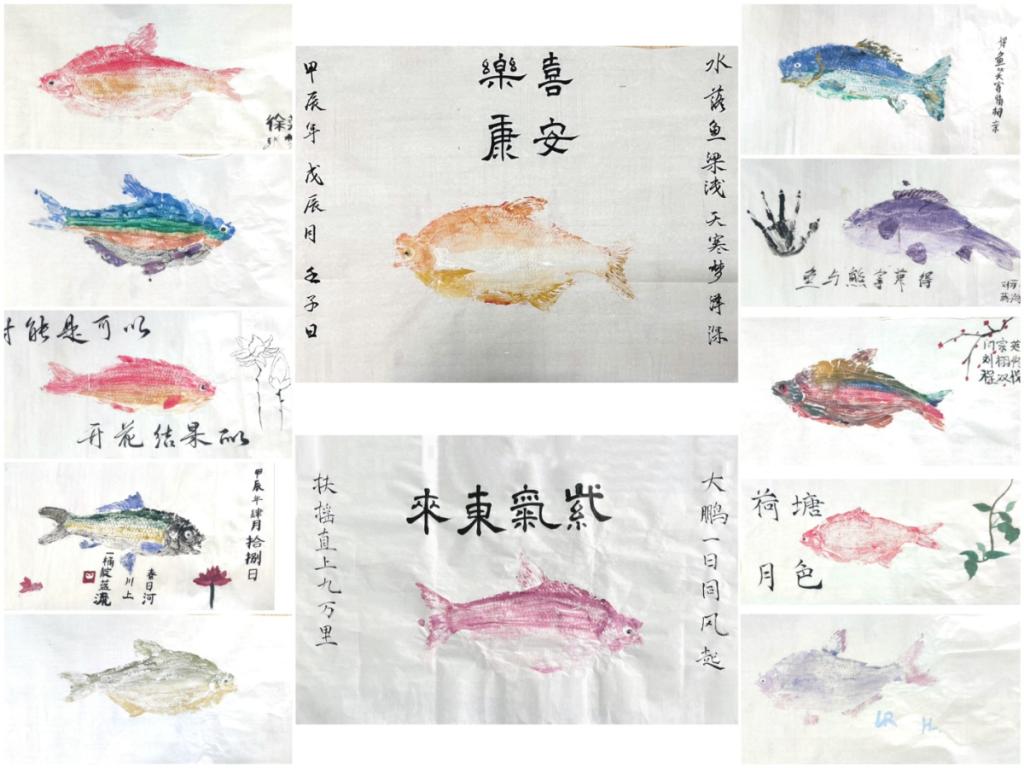 徐
能是可以
开花结果的
甲辰年肆月拾捌日
春日河
川上
一桶靛蓝流
水落鱼梁浅 天寒梦泽深
喜樂
安康
甲辰年 戊辰月 壬子日
大鹏一日同风起
紫氣東來
扶摇直上九万里
鱼与熊掌兼得
荷塘
月色
LR H